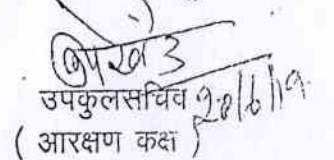 उपकुलसचिव 20/6/19
( आरक्षण कक्ष )